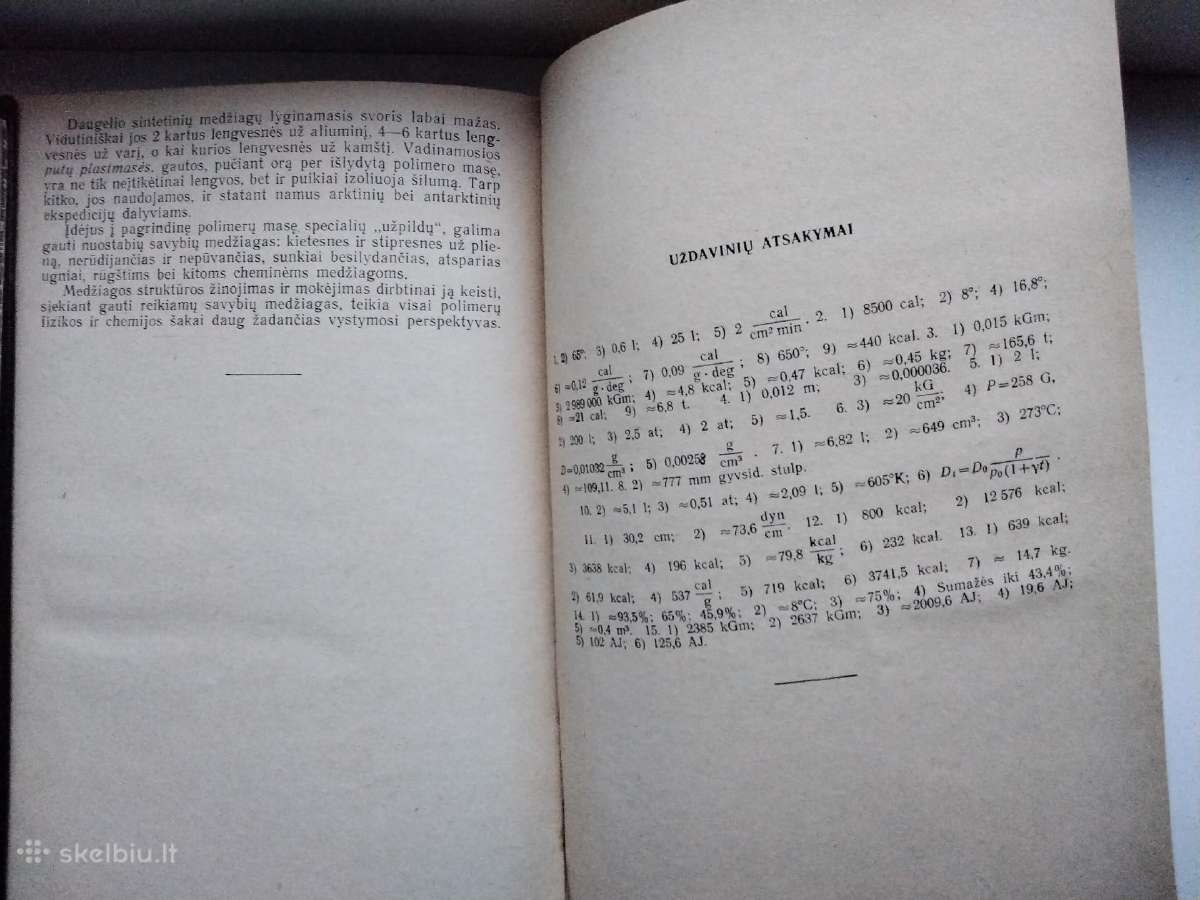 Daugelio sintetinių medžiagų lyginamasis svoris labai mažas.
Vidutiniškai jos 2 kartus lengvesnės už aliuminį, 4—6 kartus leng-
vesnės už varį, o kai kurios lengvesnės už kamštį. Vadinamosios
putų plastmasės, gautos, pučiant orą per išlydytą polimero masę,
yra ne tik neįtikėtinai lengvos, bet ir puikiai izoliuoja šilumą. Tarp
kitko, jos naudojamos, ir statant namus arktinių bei antarktinių
ekspedicijų dalyviams.
Įdėjus į pagrindinę polimerų masę specialių „užpildų“, galima
gauti nuostabių savybių medžiagas: kietesnes ir stipresnes už plie-
ną, nerūdijančias ir nepūvančias, sunkiai besilydančias, atsparias
ugniai, rūgštims bei kitoms cheminėms medžiagoms.
Medžiagos struktūros žinojimas ir mokėjimas dirbtinai ją keisti,
siekiant gauti reikiamų savybių medžiagas, teikia visai polimerų
fizikos ir chemijos šakai daug žadančias vystymosi perspektyvas.
UŽDAVINIŲ ATSAKYMAI
1. 2) 65°; 3) 0,6 l; 4) 25 l; 5) 2 cal/cm² min. 2. 1) 8500 cal; 2) 8°; 4) 16,8°;
6) ≈0,12 cal/g·deg; 7) 0,09 cal/g·deg; 8) 650°; 9) ≈440 kcal. 3. 1) 0,015 kGm;
3) 2 989 000 kGm; 4) ≈4,8 kcal; 5) ≈0,47 kcal; 6) ≈0,45 kg; 7) ≈165,6 t;
8) ≈21 cal; 9) ≈6,8 t. 4. 1) 0,012 m; 3) ≈0,000036. 5. 1) 2 l;
2) 200 l; 3) 2,5 at; 4) 2 at; 5) ≈1,5. 6. 3) ≈20 kG/cm²; 4) P=258 G,
D=0,01032 g/cm³; 5) 0,00258 g/cm³. 7. 1) ≈6,82 l; 2) ≈649 cm³; 3) 273°C;
4) ≈109,11. 8. 2) ≈777 mm gyvsid. stulp.
10. 2) ≈5,1 l; 3) ≈0,51 at; 4) ≈2,09 l; 5) ≈605°K; 6) Dₜ=D₀ p/p₀(1+γt).
11. 1) 30,2 cm; 2) ≈73,6 dyn/cm. 12. 1) 800 kcal; 2) 12 576 kcal;
3) 3638 kcal; 4) 196 kcal; 5) ≈79,8 kcal/kg; 6) 232 kcal. 13. 1) 639 kcal;
2) 61,9 kcal; 4) 537 cal/g; 5) 719 kcal; 6) 3741,5 kcal; 7) ≈ 14,7 kg.
14. 1) ≈93,5%; 65%; 45,9%; 2) ≈8°C; 3) ≈75%; 4) Sumažės iki 43,4%;
5) ≈0,4 m³. 15. 1) 2385 kGm; 2) 2637 kGm; 3) ≈2009,6 AJ; 4) 19,6 AJ;
5) 102 AJ; 6) 125,6 AJ.
skelbiu.lt